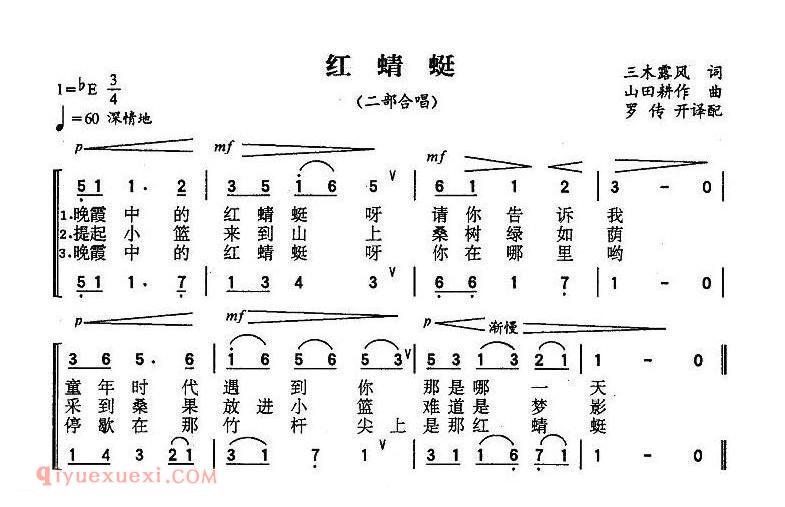 红 蜻 蜓
(二部合唱)
1=♭E 3/4
♩=60 深情地
三木露风 词
山田耕作 曲
罗 传 开译配
p mf mf
5 1 1. 2 | 3 5 i 6 5 V | 6 1 1 2 | 3 - 0 |
1.晚霞 中 的 红 蜻 蜓 呀 请 你 告 诉 我
2.提起 小 篮 来 到 山 上 桑 树 绿 如 荫
3.晚霞 中 的 红 蜻 蜓 呀 你 在 哪 里 哟
5 1 1. 7 | 1 3 4 3 V | 6 6 1 7 | 1 - 0 |
p mf p 渐慢
3 6 5. 6 | i 6 5 6 5 3 V | 5 3 1 3 2 1 | 1 - 0 ‖
童 年 时 代 遇 到 你 那 是 哪 一 天
采 到 桑 果 放 进 小 篮 难 道 是 梦 影
停 歇 在 那 竹 杆 尖 上 是 那 红 蜻 蜓
1 4 3 2 1 | 3 1 7 1 V | 1 1 1 6 7 1 | 1 - 0 ‖
qiyuexuexi.com